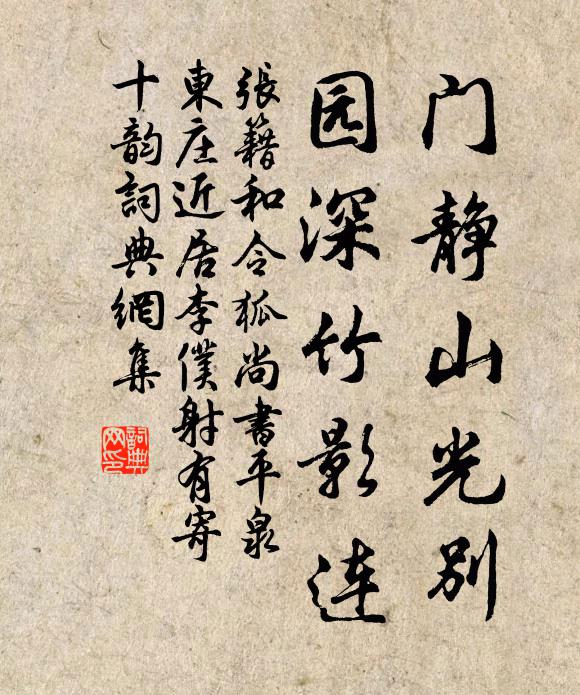 门静山光别
园深竹影连
張籍和令狐尚書平泉
東庄近居李僕射有寄
十韵詞典網集
詞典
网印